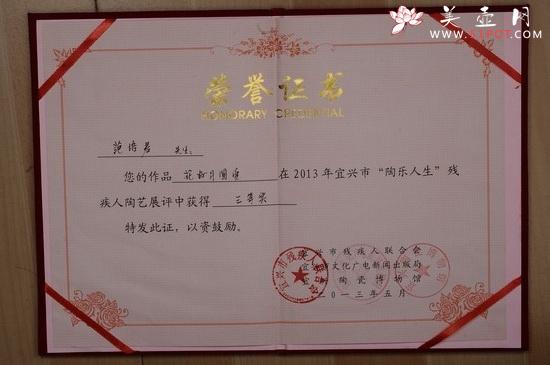 美壶网
WWW.51POT.COM
荣誉证书
HONORARY CREDENTIAL
范培君 先生:
您的作品 花好月圆壶 在2013年宜兴市“陶乐人生”残
疾人陶艺展评中获得 三等奖
特发此证，以资鼓励。
宜兴市残疾人联合会
宜兴市文化广电新闻出版局
宜兴陶瓷博物馆
二〇一三年五月